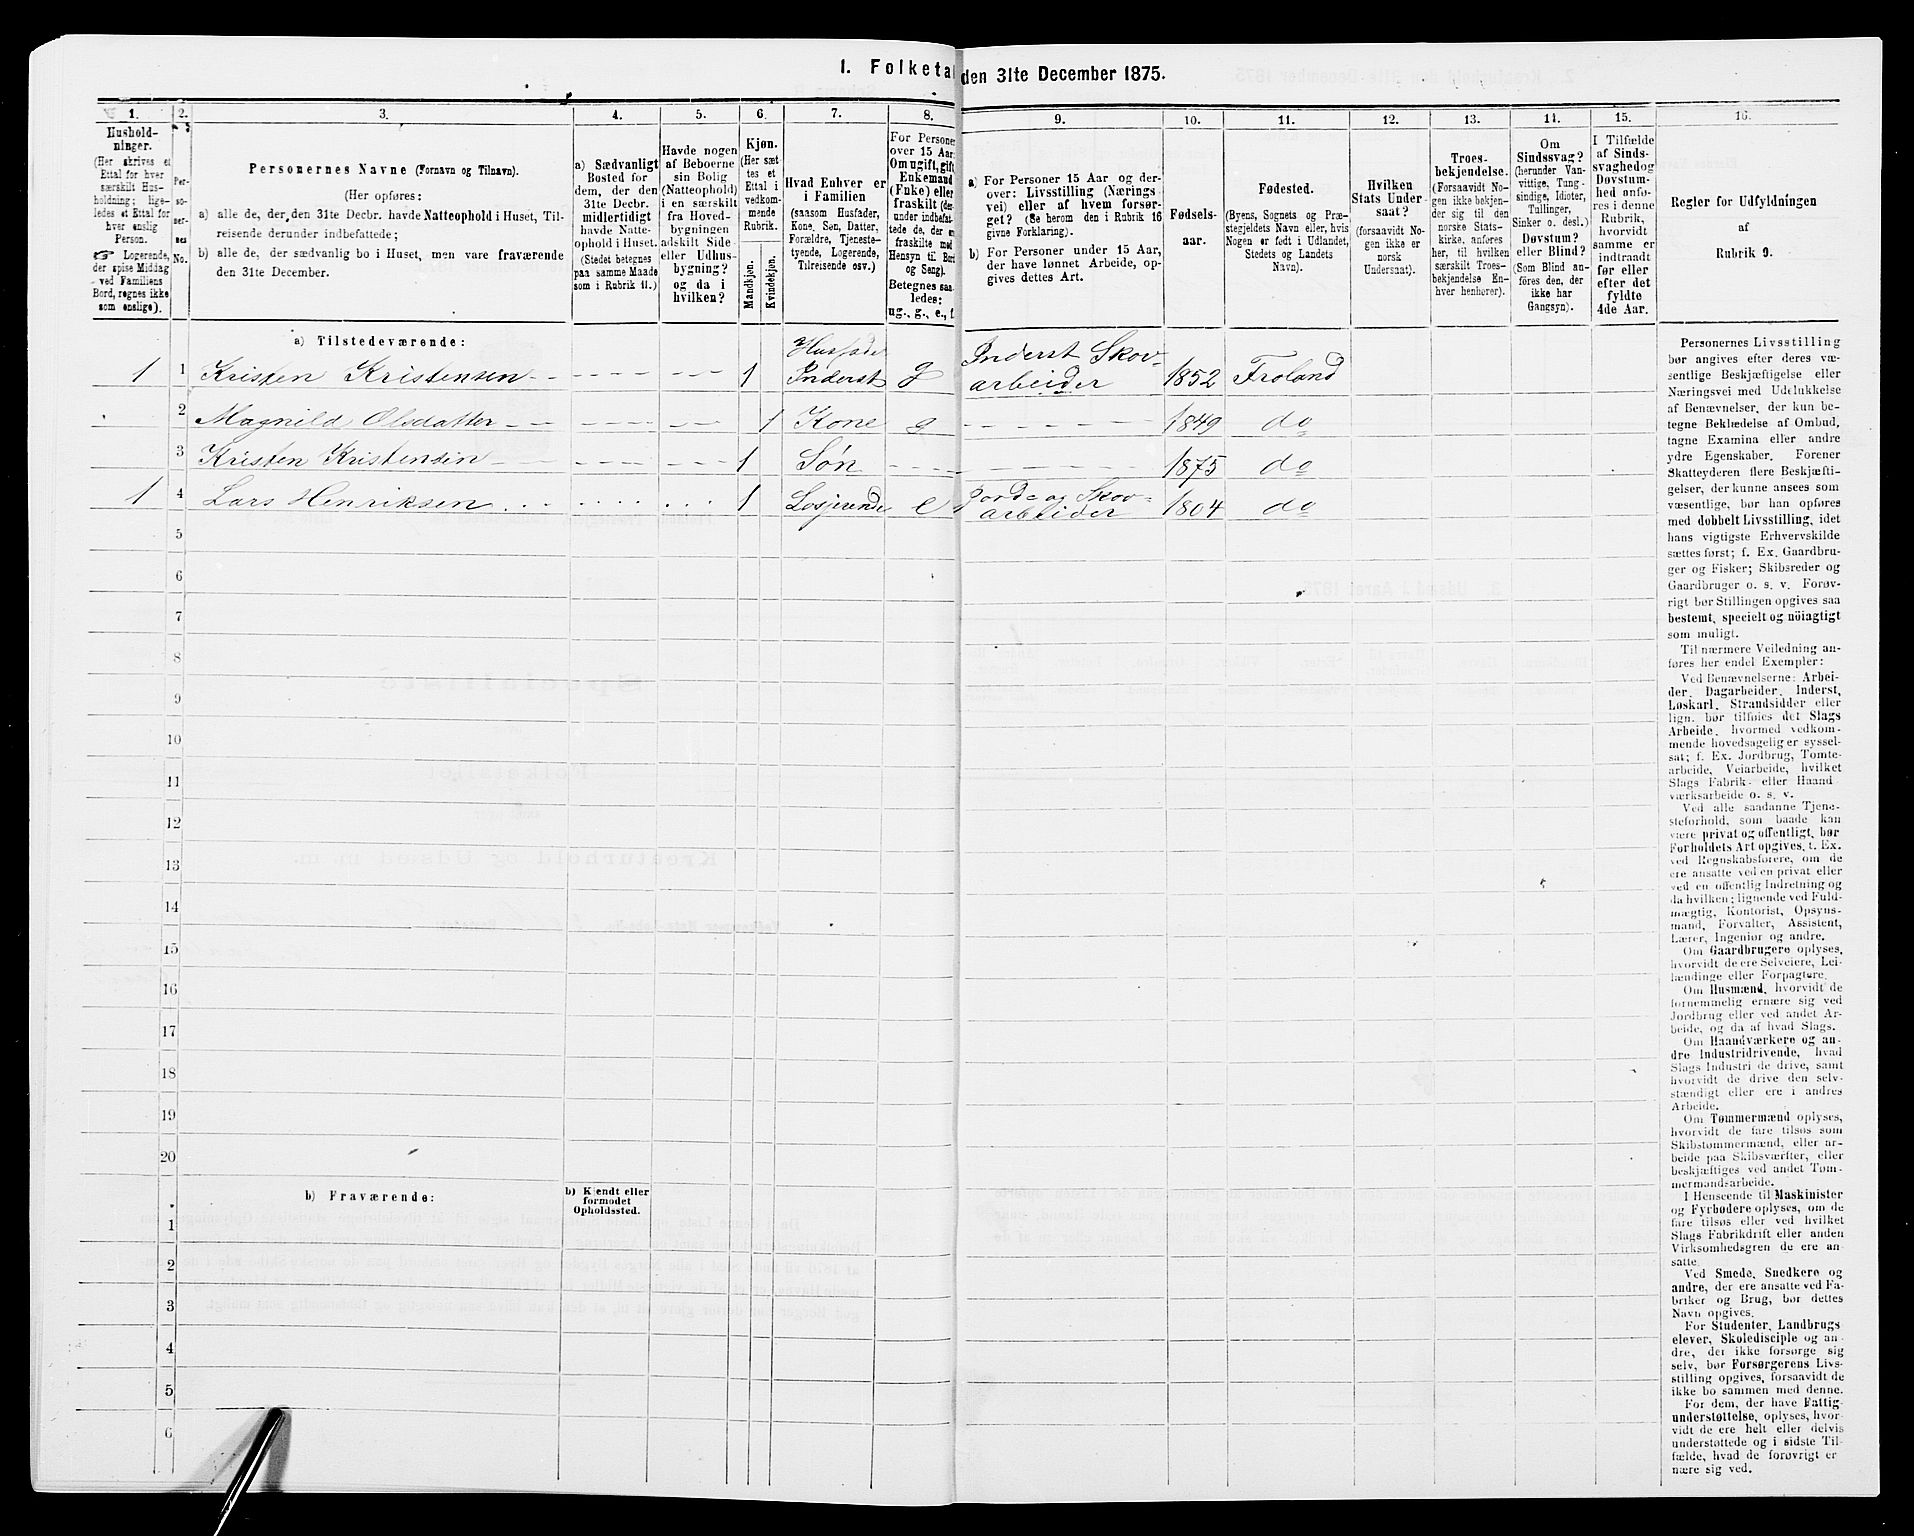 1. Folketal den 31te December 1875.
1.
Hushold-
ninger.
(Her skrives et
Ettal for hver
særskilt Hus-
holdning; lige-
ledes et Ettal for
hver enslig
Person.
☞ Logerende,
der spise Middag
ved Familiens
Bord, regnes ikke
som enslige).
2.
Per-
so-
ner-
nes
No.
3.
Personernes Navne (Fornavn og Tilnavn).
(Her opføres:
a) alle de, der den 31te Decbr. havde Natteophold i Huset, Til-
reisende derunder indbefattede;
b) alle de, der sædvanlig bo i Huset, men vare fraværende
den 31te December.
4.
a) Sædvanligt
Bosted for
dem, der den
31te Decbr.
midlertidigt
havde Natte-
ophold i Huset.
(Stedet betegnes
paa samme Maade
som i Rubrik 11.)
5.
Havde nogen
af Beboerne
sin Bolig
(Natteophold)
i en særskilt
fra Hoved-
bygningen
adskilt Side-
eller Udhus-
bygning?
og da i
hvilken?
6.
Kjøn.
(Her sæt-
tes et
Ettal i
vedkom-
mende
Rubrik.
Mandkjøn.
Kvindekjøn.
7.
Hvad Enhver er
i Familien
(saasom Husfader,
Kone, Søn, Datter,
Forældre, Tjeneste-
tyende, Logerende,
Tilreisende osv.)
8.
For Personer
over 15 Aar:
Om ugift, gift,
Enkemand
(Enke) eller
fraskilt (der-
under indbefat-
tede de, der ere
fraskilte med
Hensyn til Bord
og Seng).
Betegnes saa-
ledes:
ug., g., e., f.
9.
a) For Personer 15 Aar og der-
over: Livsstilling (Nærings-
vei) eller af hvem forsør-
get? (Se herom den i Rubrik 16
givne Forklaring).
b) For Personer under 15 Aar,
der have lønnet Arbeide, op-
gives dettes Art.
10.
Fødsels-
aar.
11.
Fødested.
(Byens, Sognets og Præ-
stegjeldets Navn eller, hvis
Nogen er født i Udlandet,
Stedets og Landets
Navn).
12.
Hvilken
Stats Under-
saat?
(forsaavidt No-
gen ikke er
norsk
Undersaat).
13.
Troes-
bekjendelse.
(Forsaavidt No-
gen ikke bekjen-
der sig til den
norske Stats-
kirke, anføres
her, til hvilken
særskilt Troes-
bekjendelse En-
hver henhører).
14.
Om
Sindssvag?
(herunder Van-
vittige, Tung-
sindige, Idioter,
Tullinger,
Sinker o. desl.)
Døvstum?
eller Blind?
(Som Blind an-
føres den, der
ikke har
Gangsyn).
15.
I Tilfælde
af Sinds-
svaghed og
Døvstum-
hed anfø-
res i denne
Rubrik,
hvorvidt
samme er
indtraadt
før eller
efter det
fyldte
4de Aar.
16.
Regler for Udfyldningen
af
Rubrik 9.
a) Tilstedeværende:
1 1 Kristen Kristensen 1 Husfader Inderst g Inderst Skov-
arbeider 1852 Froland
2 Magnild Olsdatter 1 Kone g 1849 do
3 Kristen Kristensen 1 Søn 1875 do
1 4 Lars Henriksen 1 Losjerende e Jord- og Skov-
arbeider 1804 do
5
6
7
8
9
10
11
12
13
14
15
16
17
18
19
20
b) Fraværende:
b) Kjendt eller
formodet
Opholdssted.
1
2
3
4
5
6
Personernes Livsstilling
bør angives efter deres væ-
sentlige Beskjæftigelse eller
Næringsvei med Udelukkelse
af Benævnelser, der kun be-
tegne Beklædelse af Ombud,
tagne Examina eller andre
ydre Egenskaber. Forener
Skatteyderen flere Beskjæfti-
gelser, der kunne ansees som
væsentlige, bør han opføres
med dobbelt Livsstilling, idet
hans vigtigste Erhvervskilde
sættes først; f. Ex. Gaardbru-
ger og Fisker; Skibsreder og
Gaardbruger o. s. v. Forøv-
rigt bør Stillingen opgives saa
bestemt, specielt og nöiagtigt
som muligt.
Til nærmere Veiledning an-
føres her endel Exempler:
Ved Benævnelserne: Arbei-
der, Dagarbeider, Inderst,
Løskarl, Strandsidder eller
lign. bør tilføies det Slags
Arbeide, hvormed vedkom-
mende hovedsagelig er syssel-
sat; f. Ex. Jordbrug, Tomte-
arbeide, Veiarbeide, hvilket
Slags Fabrik- eller Haand-
værksarbeide o. s. v.
Ved alle saadanne Tjene-
steforhold, som baade kan
være privat og offentligt, bør
Forholdets Art opgives, f. Ex.
ved Regnskabsførere, om de
ere ansatte ved en privat eller
ved en offentlig Indretning og
da hvilken; lignende ved Fuld-
mægtig, Kontorist, Opsyns-
mand, Forvalter, Assistent,
Lærer, Ingeniør og andre.
Om Gaardbrugere oplyses,
hvorvidt de ere Selveiere, Lei-
lændinge eller Forpagtere.
Om Husmænd, hvorvidt de
fornemmelig ernære sig ved
Jordbrug eller ved andet Ar-
beide, og da af hvad Slags.
Om Haandværkere og an-
dre Industridrivende, hvad
Slags Industri de drive, samt
hvorvidt de drive den selv-
stændigt eller ere i andres
Arbeide.
Om Tømmermænd oplyses,
hvorvidt de fare tilsøs som
Skibstømmermænd, eller ar-
beide paa Skibsværfter, eller
beskjæftiges ved andet Tøm-
mermandsarbeide.
I Henseende til Maskinister
og Fyrbødere oplyses, om de
fare tilsøs eller ved hvilket
Slags Fabrikdrift eller anden
Virksomhedsgren de ere an-
satte.
Ved Smede, Snedkere og
andre, der ere ansatte ved Fa-
briker og Brug, bør dettes
Navn opgives.
For Studenter, Landbrugs-
elever, Skoledisciple og an-
dre, der ikke forsørge sig
selv, bør Forsørgerens Livs-
stilling opgives, forsaavidt de
ikke bo sammen med denne.
For dem, der have Fattig-
understøttelse, oplyses, hvor-
vidt de ere helt eller delvis
understøttede og i sidste Til-
fælde, hvad de forøvrigt er-
nære sig ved.